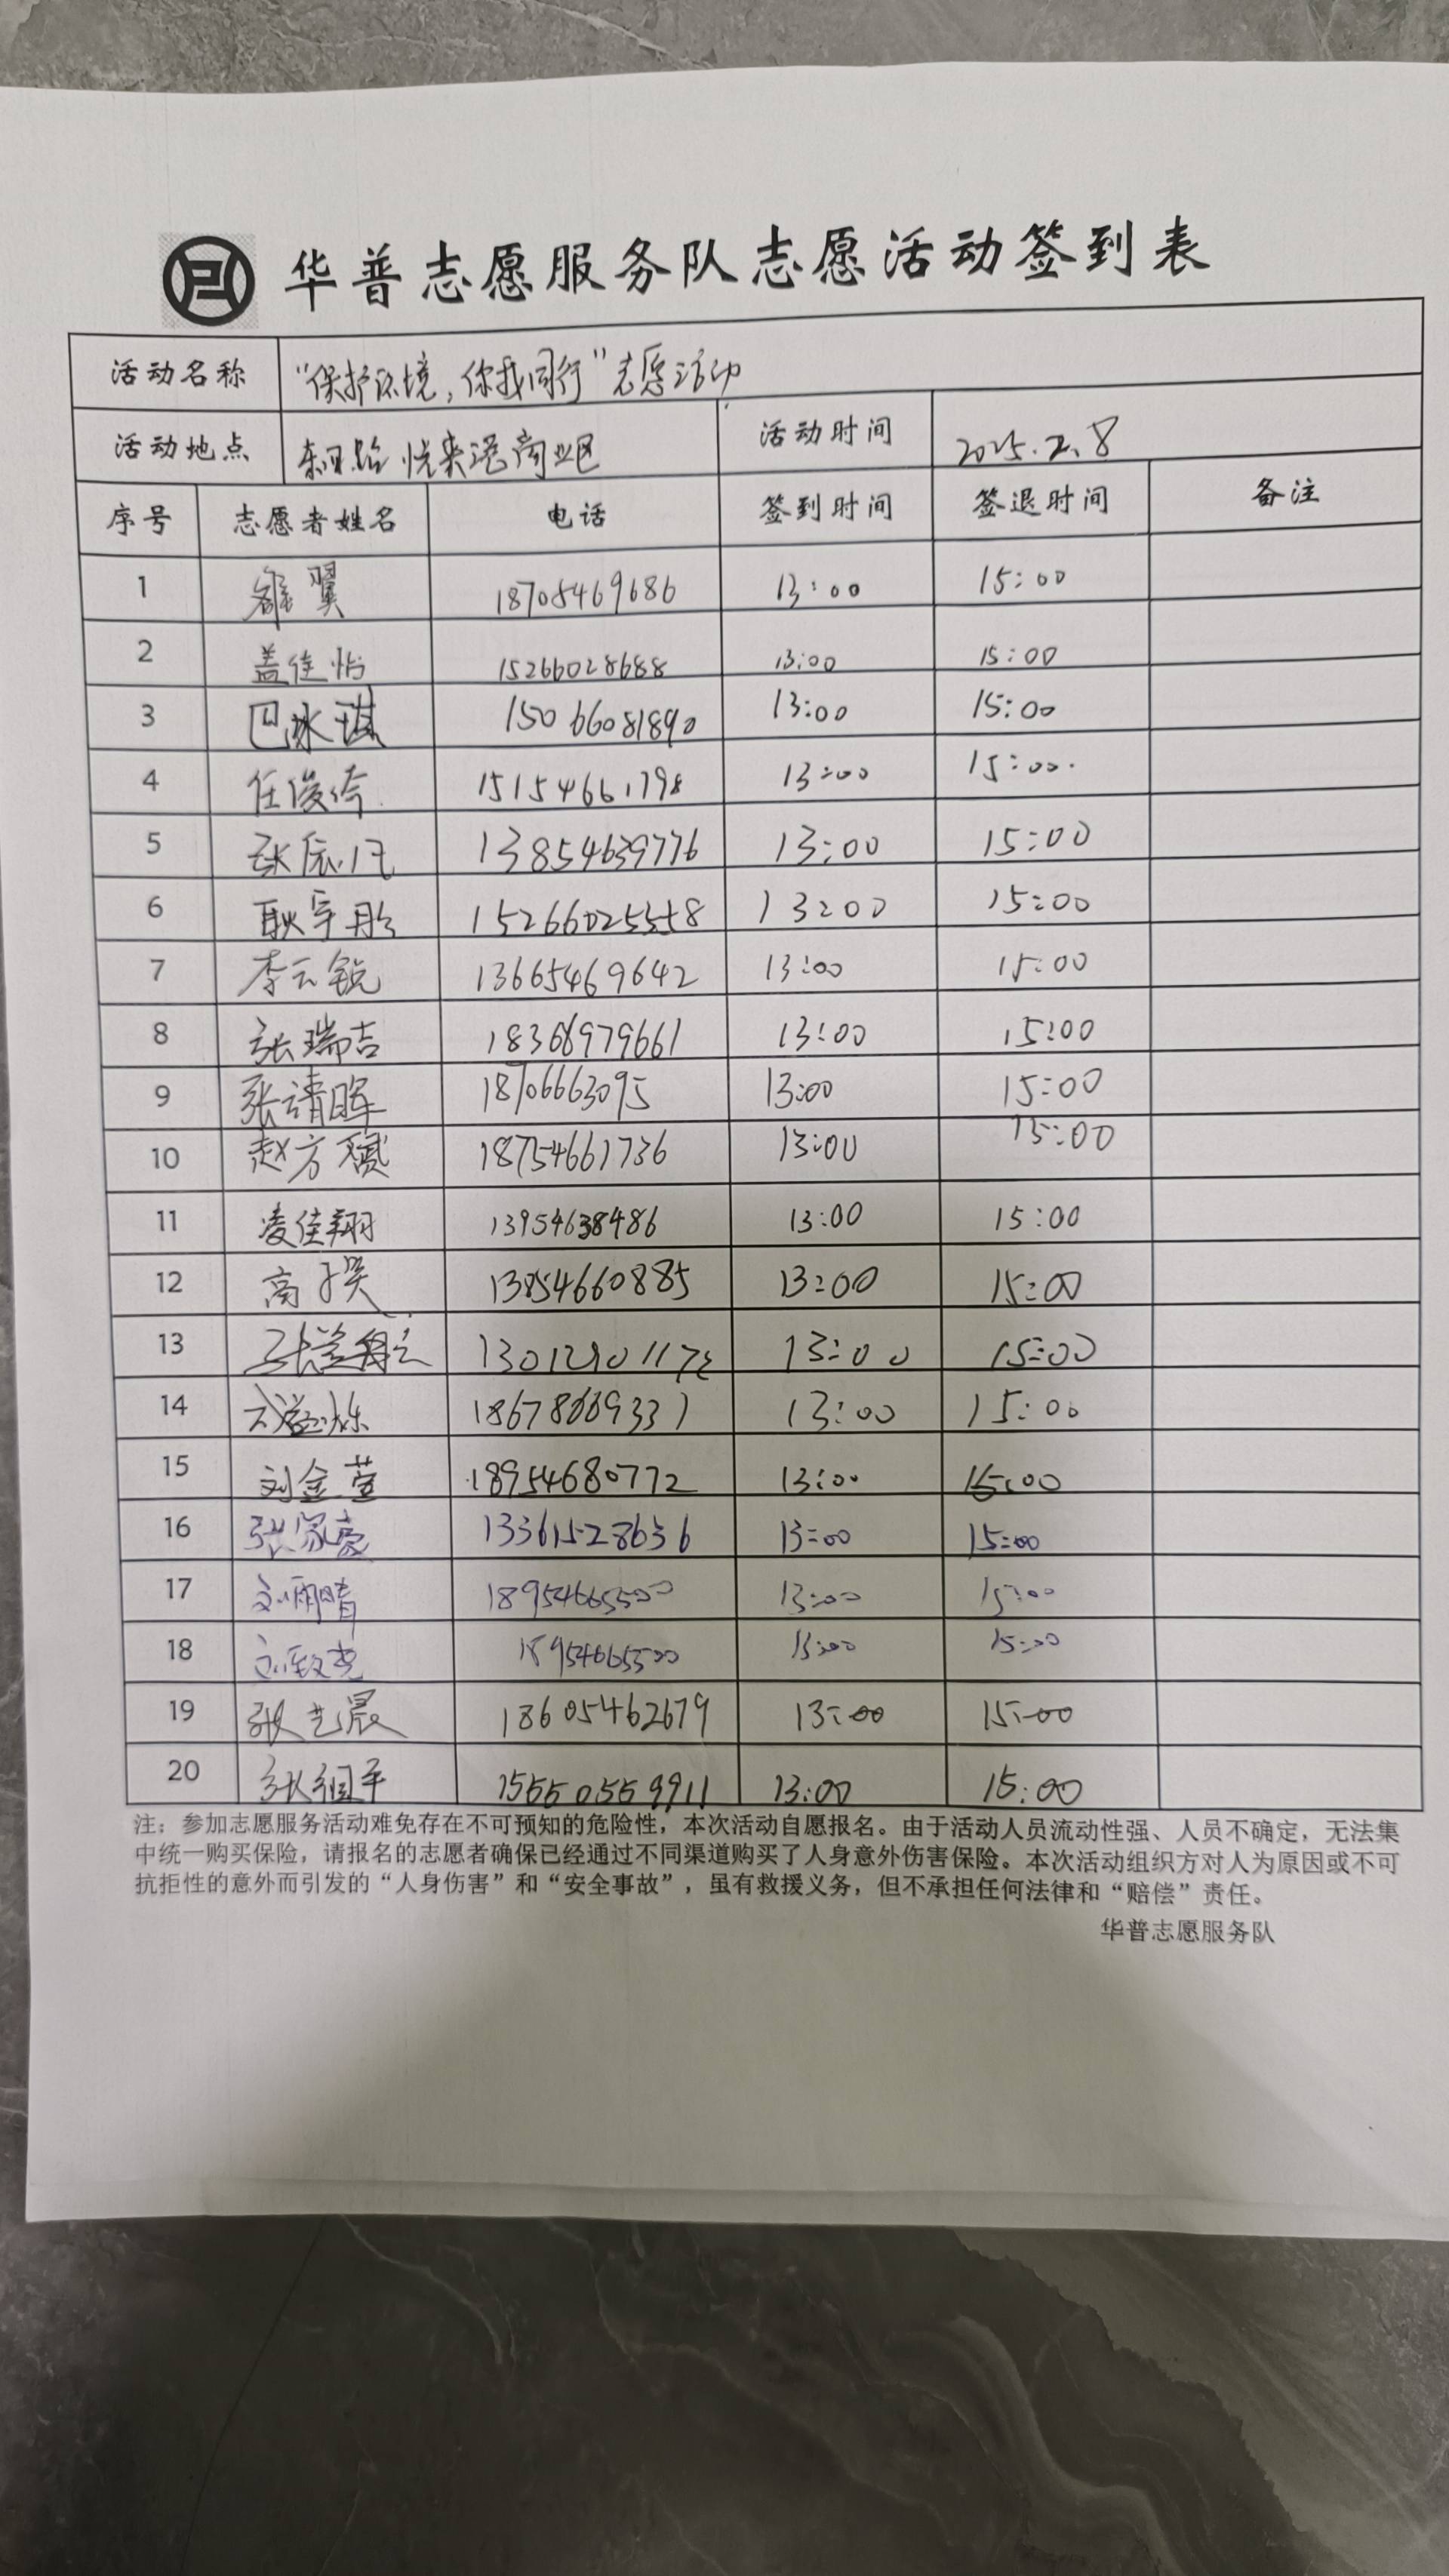 华普志愿服务队志愿活动签到表
活动名称 “保护环境,你我同行”志愿活动
活动地点 悦来港商业区 活动时间 2025.2.8
序号 志愿者姓名 电话 签到时间 签退时间 备注
1 翼 18705469686 13:00 15:00
2 盖佳怡 15266028688 13:00 15:00
3 巴冰琪 15066081890 13:00 15:00
4 任俊 15154661798 13:00 15:00.
5 张辰 13854639776 13:00 15:00
6 耿宇彤 15266025558 13:00 15:00
7 李云锐 13665469642 13:00 15:00
8 张瑞吉 18366979661 13:00 15:00
9 张请晖 18706663095 13:00 15:00
10 赵方 18754661736 13:00 15:00
11 凌佳翔 13954638486 13:00 15:00
12 高子 13854660885 13:00 15:00
13 张 13:00 15:00
14 18678669331 13:00 15:00
15 刘金萱 18954680772 13:00 15:00
16 张家豪 13361528636 13:00 15:00
17 刘雨晴 18954665500 13:00 15:00
18 刘 18954665500 13:00 15:00
19 张艺晨 18605462679 13:00 15:00
20 张 15550559911 13:00 15:00
注：参加志愿服务活动难免存在不可预知的危险性，本次活动自愿报名。由于活动人员流动性强、人员不确定，无法集
中统一购买保险，请报名的志愿者确保已经通过不同渠道购买了人身意外伤害保险。本次活动组织方对人为原因或不可
抗拒性的意外而引发的“人身伤害”和“安全事故”，虽有救援义务，但不承担任何法律和“赔偿”责任。
华普志愿服务队